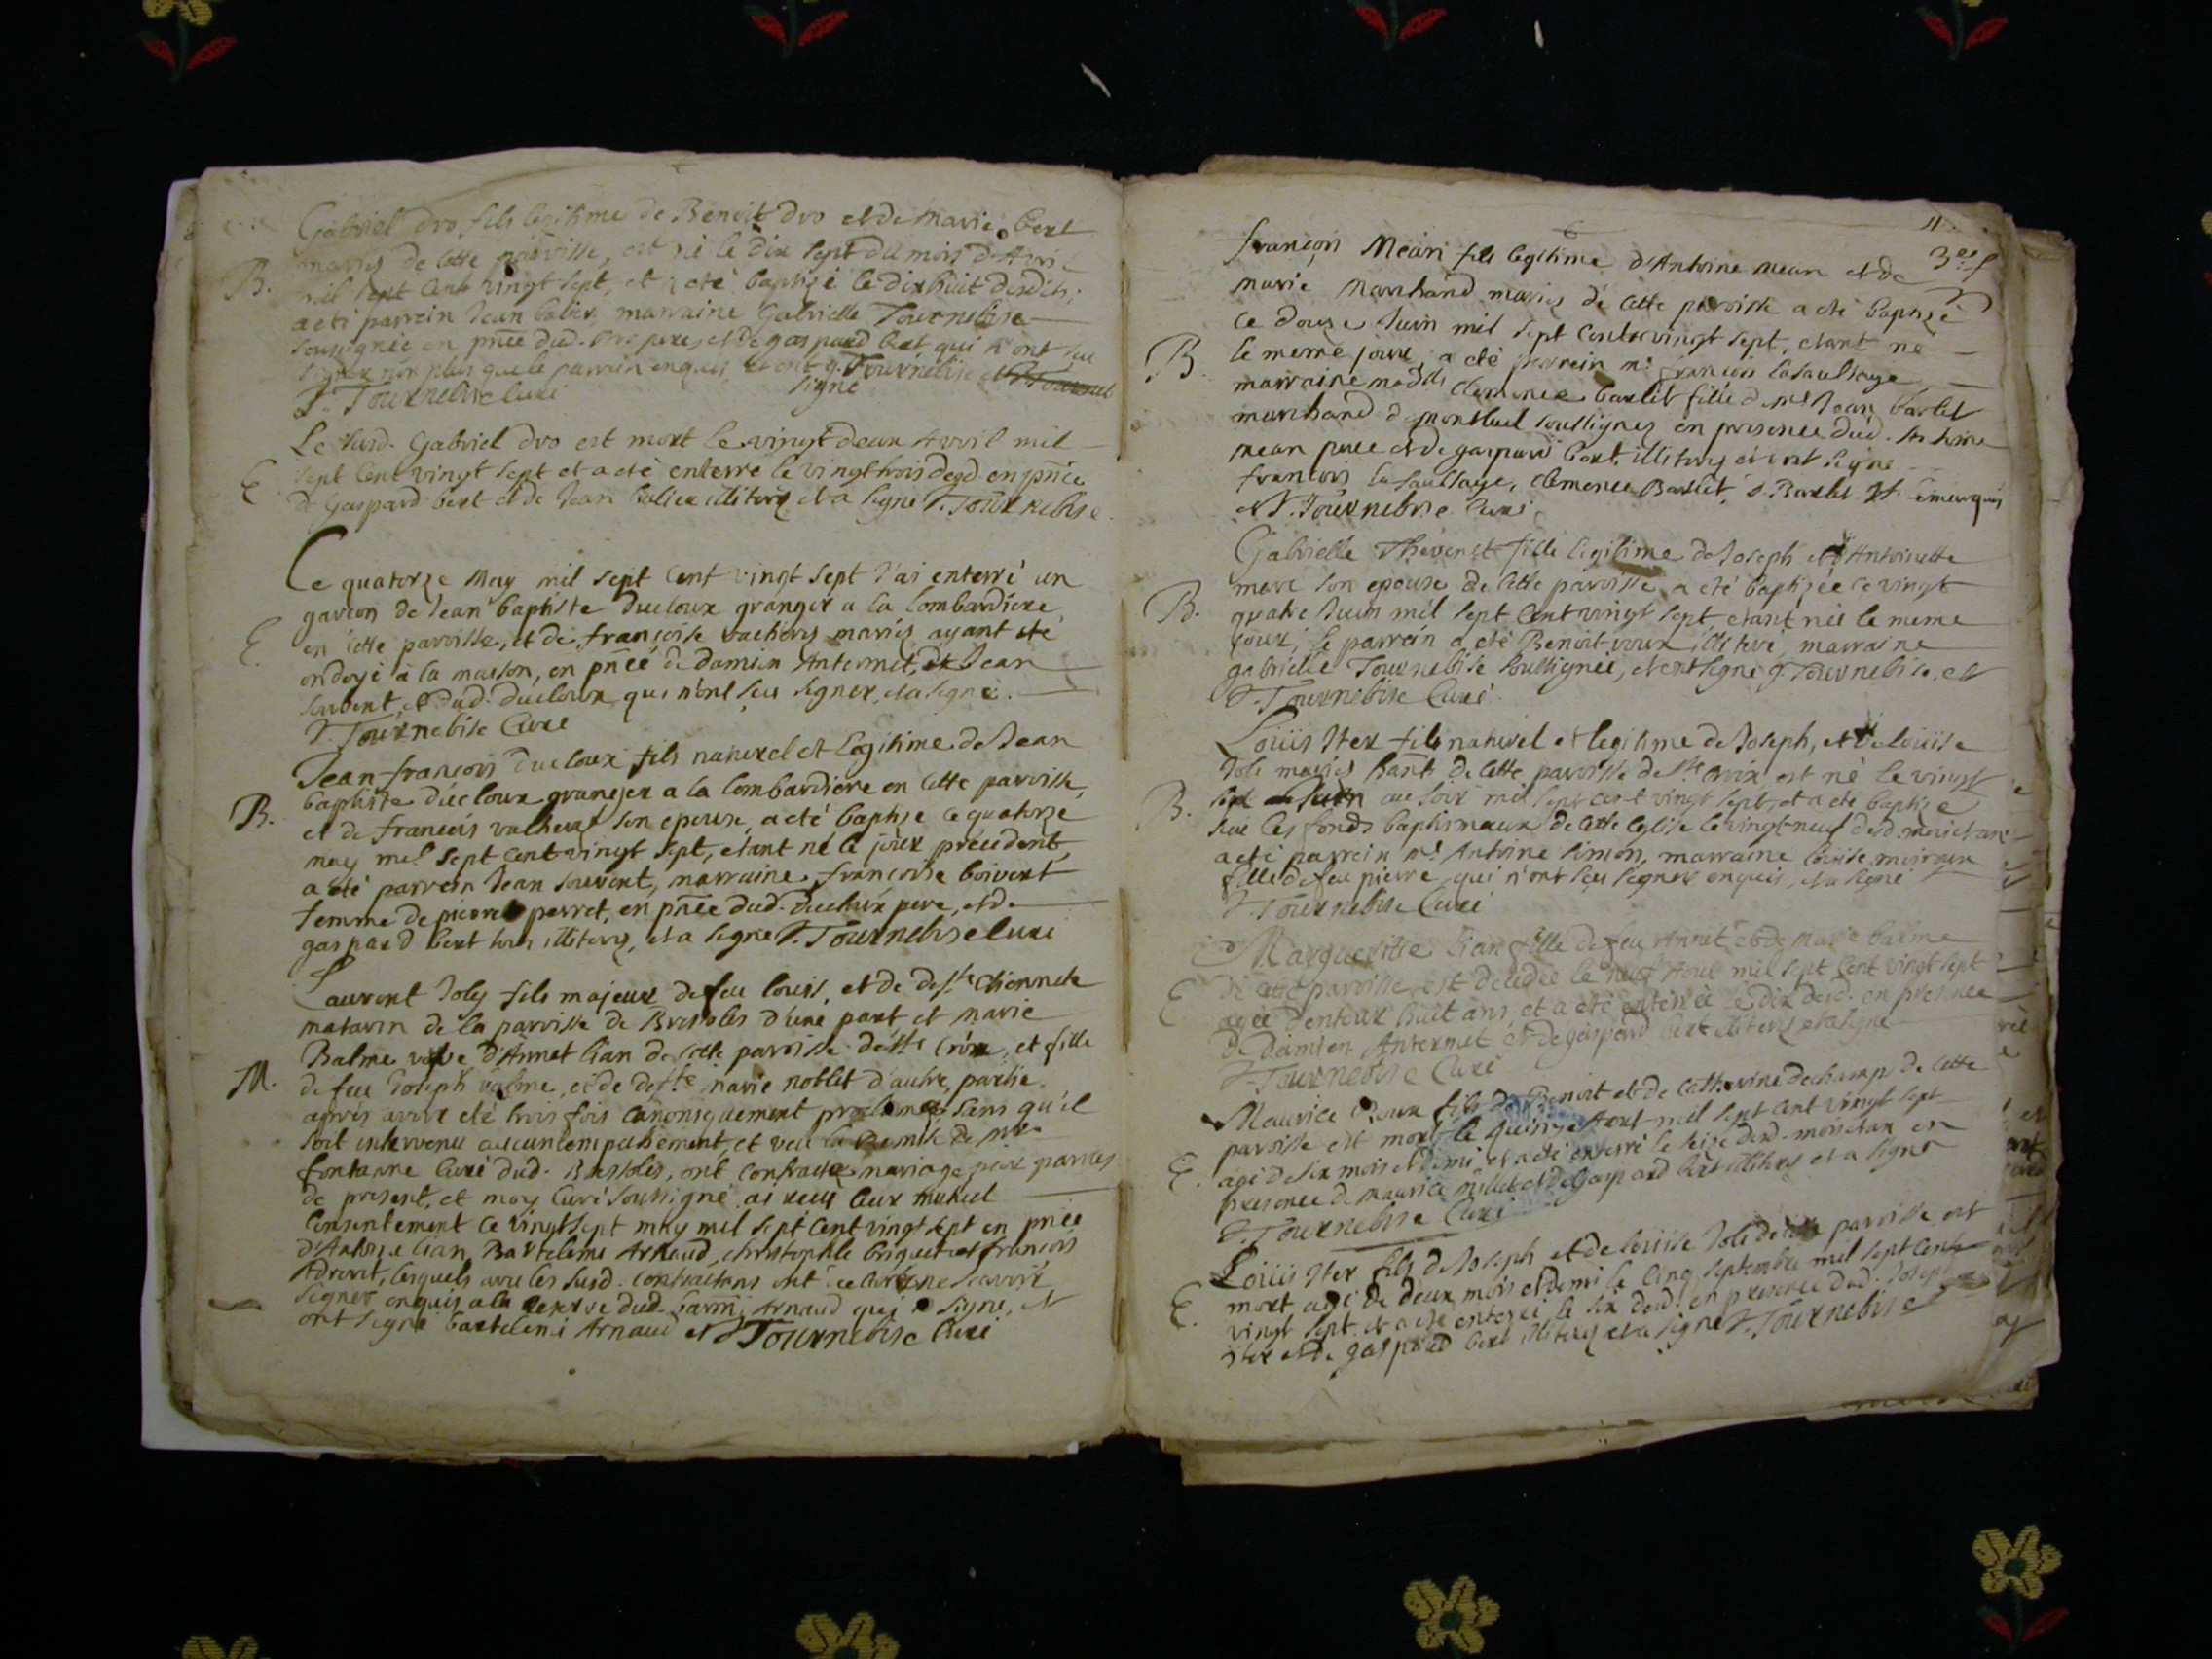 Gabriel dvo fils legitime de Benoit dvo et de Marie bert
mariés de cette paroisse, est né le dix sept du mois d'Avri
B. mil sept cent vingt sept, et a eté baptizé le dix huit desdits,
a eté parrein Jean balier, marraine Gabrielle Tournebise
sousignée en pñce dud. dvo pere, et de gaspard bert qui n'ont sçu
signer non plus que le parrein enquis et ont signé g. Tournebise
T. Tournebise Curé
Le susd. Gabriel dvo est mort le vingt deux Avril mil
E sept cent vingt sept et a eté enterré le vingt trois desd. en pñce
de Gaspard bert et de Jean balier illiterez et a signé T. Tournebise
Ce quatorze May mil sept cent vingt sept j'ai enterré un
garcon de Jean baptiste ducloux granger a la lombardiere
E. en cette paroisse, et de françoise vachere mariés ayant eté
ondoyé à la maison, en pñce de damien Antermet, de Jean
souvent, et dud. ducloux qui n'ont sçu signer, et a signé.
T. Tournebise Curé
Jean françois ducloux fils naturel et legitime de Jean
B. baptiste ducloux granger a la lombardiere en cette paroisse,
et de francois vachere son epouse, a eté baptisé ce quatorze
may mil sept cent vingt sept, etant né le jour précédent,
a eté parrein Jean souvent, marraine françoise boivent
femme de pierre perret, en pñce dud. ducloux pere, et de
gaspard bert tous illiterez, et a signé T. Tournebise Curé
Laurent Joly fils majeur de feu louis, et de deste Etiennete
matavin de la paroisse de Bressoles d'une part et Marie
Balme veuve d'Annet lian de cette paroisse de ste Croix, et fille
M. de feu Joseph balme, et de deste marie noblet d'autre partie.
aprés avoir eté trois fois canoniquement proclamez sans qu'il
soit intervenu aucun empechement, et veu la remise de mre
fontanne Curé dud. Bressoles, ont contracté mariage par paroles
de present, et moy Curé soussigné ai receu leur mutuel
consentement ce vingt sept may mil sept cent vingt sept en pñce
d'Antoine lian, Bartelemi Arnaud, christophle briquet et francois
Adrovit, lesquels avec les susd. contractans ont declaré ne sçavoir
signer enquis a la reserve dud. barmi Arnaud qui a signé, et
ont signé bartelemi Arnaud et T. Tournebise Curé
11.
3es f
françois Mean fils legitime d'Antoine mean et de
marie marchand mariés de cette paroisse a eté baptizé
ce douze Juin mil sept cent vingt sept, etant né
B. le meme jour, a eté parrein mr. françois lasaulsaye
marraine madlle clemence barlet fille de mr Jean barlet
marchand de montluel soussignez en presence dud. Antoine
mean pere et de gaspard bert, illiterez et ont signé
francois lasaulsaye, clemence Barlet, J. Barlet
et T. Tournebise Curé
Gabrielle Thevenet fille legitime de Joseph et d'Antoinette
mere son epouse de cette paroisse a eté baptizée ce vingt
B. quatre Juin mil sept cent vingt sept, etant née le meme
jour, le parrein a eté Benoit roux illiteré, marraine
gabrielle Tournebise soussignée, et ont signé g. Tournebise, et
T. Tournebise Curé.
Louis Iter fils naturel et legitime de Joseph, et de louise
Joli mariés de cette paroisse de ste croix est né le vingt
B. Juin au soir mil sept cent vingt sept, et a eté baptizé
sur les fonds baptismaux de cette eglise le vingt neuf desd. mois et an
a eté parrein mr Antoine simon, marraine louise
fille de feu pierre, qui n'ont sçeu signer enquis, et a signé
T. Tournebise Curé
Margueritte lian fille de feu Annet et de Marie balme
E de cette paroisse est decedée le neuf Aout mil sept cent vingt sept
agée d'environ huit ans et a eté enterrée le dix desd. en presence
de damien Antermet et de gaspard bert illiterez et a signé
T. Tournebise Curé
Maurice Roux fils de Benoit et de Catherine dechamp de cette
paroisse est mort le quinze Aout mil sept cent vingt sept
E. agé de six mois et demi et a eté enterré le seize desd. mois et an en
presence de maurice millet et de Gaspard bert illiterez et a signé
T. Tournebise Curé
Louis Iter fils de Joseph et de louise Joli de cette paroisse est
mort agé de deux mois et demi le cinq septembre mil sept cent
E. vingt sept et a eté enterré le six desd. en presence dud. Joseph
iter et de gaspard bert illiterez et a signé T. Tournebise